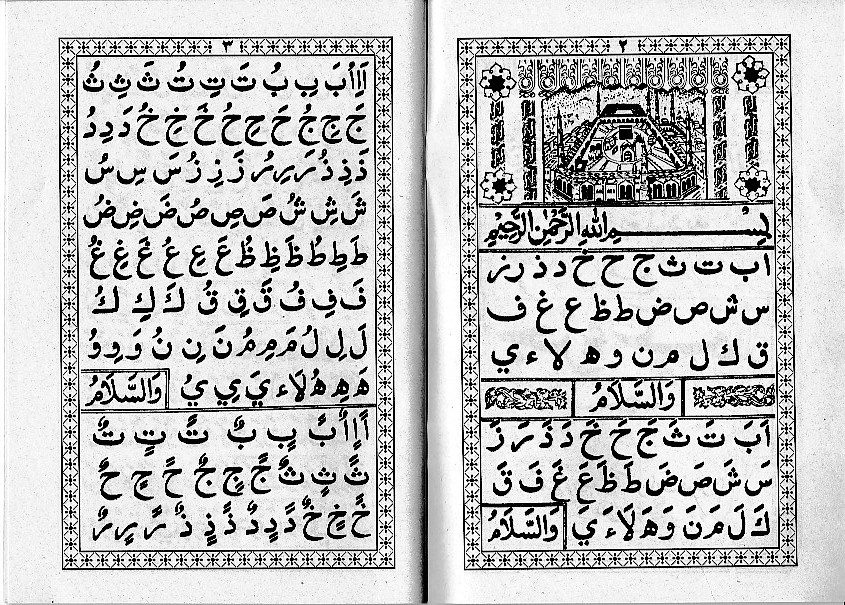 ٢
بِسْمِ اللهِ الرَّحْمٰنِ الرَّحِيْمِ
ا ب ت ث ج ح خ د ذ ر ز
س ش ص ض ط ظ ع غ ف
ق ك ل م ن و ه لا ء ي
وَالسَّلَامُ
اَ بَ تَ ثَ جَ حَ خَ دَ ذَ رَ زَ
سَ شَ صَ ضَ طَ ظَ عَ غَ فَ قَ
كَ لَ مَ نَ وَ هَ لَا ءَ يَ وَالسَّلَامُ
٣
اَ اِ اُ بَ بِ بُ تَ تِ تُ ثَ ثِ ثُ
جَ جِ جُ حَ حِ حُ خَ خِ خُ دَ دِ دُ
ذَ ذِ ذُ رَ رِ رُ زَ زِ زُ سَ سِ سُ
شَ شِ شُ صَ صِ صُ ضَ ضِ ضُ
طَ طِ طُ ظَ ظِ ظُ عَ عِ عُ غَ غِ غُ
فَ فِ فُ قَ قِ قُ كَ كِ كُ
لَ لِ لُ مَ مِ مُ نَ نِ نُ وَ وِ وُ
هَ هِ هُ لَا ءَ يَ يِ يُ وَالسَّلَامُ
اً اٍ اٌ بً بٍ بٌ تً تٍ تٌ
ثً ثٍ ثٌ جً جٍ جٌ حً حٍ حٌ
خً خٍ خٌ دً دٍ دٌ ذً ذٍ ذٌ رً رٍ رٌ